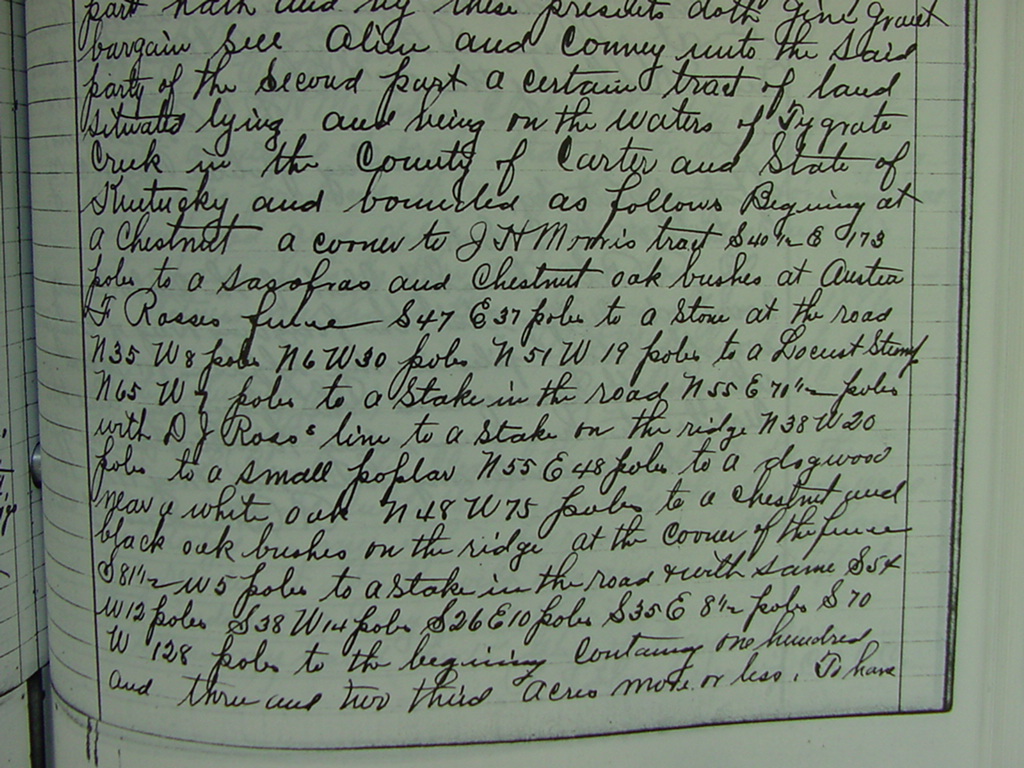 part hath and by these presents doth give grant
bargain Sell Alien and Convey unto the Said
party of the Second part a certain tract of land
Situated lying and being on the waters of Tygrate
Creek in the County of Carter and State of
Kentucky and bounded as follows Begining at
a Chestnut a corner to J H Morris tract S40½ E 173
poles to a Sasofras and Chestnut oak bushes at
F Rosses fence S47 E37 poles to a Stone at the road
N35 W8 poles N6 W30 poles N51 W 19 poles to a Locust Stump
N65 W 7 poles to a Stake in the road N55 E 70½ poles
with D J Ross's line to a Stake on the ridge N38 W20
poles to a small poplar N55 E48 poles to a dogwood
near a white oak N48 W75 poles to a Chestnut and
black oak bushes on the ridge at the Corner of the fence
S81½ W5 poles to a Stake in the road & with same S54
W12 poles S38 W14 poles S26 E10 poles S35 E 8½ poles S70
W 128 poles to the begining Containg one hundred
and three and two third Acres more or less. To have